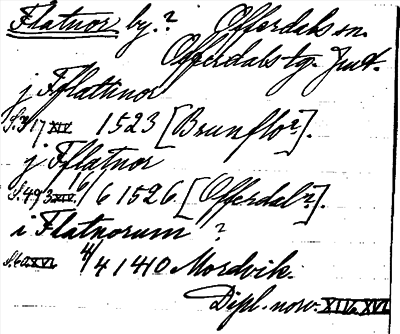 Flatnor by.? Offerdals sn.
Offerdals tg. Jmt.
j Fflattnor
S. 317 XIV 1523 [Brunflo?].
j Fflatnor
S. 493 XIV. 6/6 1526 [Offerdal?].
i Flatnorum ?
S. 60 XVI 4/4 1410 Mordvik.
Dipl. norv. XIV. XVI